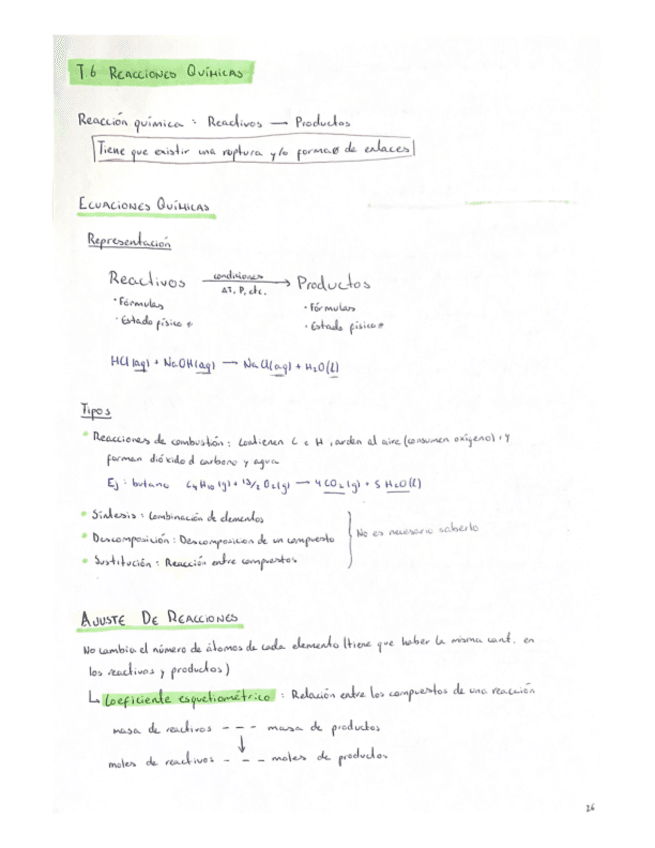 T.6 REACCIONES QUÍMICAS
Reacción química : Reactivos — Productos
Tiene que existir una ruptura y/o formaø de enlaces
ECUACIONES QUÍMICAS
Representación
Reactivos condiciones ΔT, P, etc. → Productos
· Fórmulas · Fórmulas
· Estado físico * · Estado físico *
HCl(aq) + NaOH(aq) → NaCl(aq) + H₂O(l)
Tipos
• Reacciones de combustión : Contienen C e H, arden al aire (consumen oxígeno), y
forman dióxido d carbono y agua
Ej : butano C₄H₁₀(g) + 13/2 O₂(g) → 4CO₂(g) + 5 H₂O(l)
• Síntesis : Combinación de elementos
• Descomposición : Descomposicion de un compuesto
No es necesario saberlo
• Sustitución : Reacción entre compuestos
AJUSTE DE REACCIONES
No cambia el número de átomos de cada elemento (tiene que haber la misma cant. en
los reactivos y productos)
↳ Coeficiente esquetiométrico : Relación entre los compuestos de una reacción
masa de reactivos - - - masa de productos
↓
moles de reactivos - - - moles de productos
26